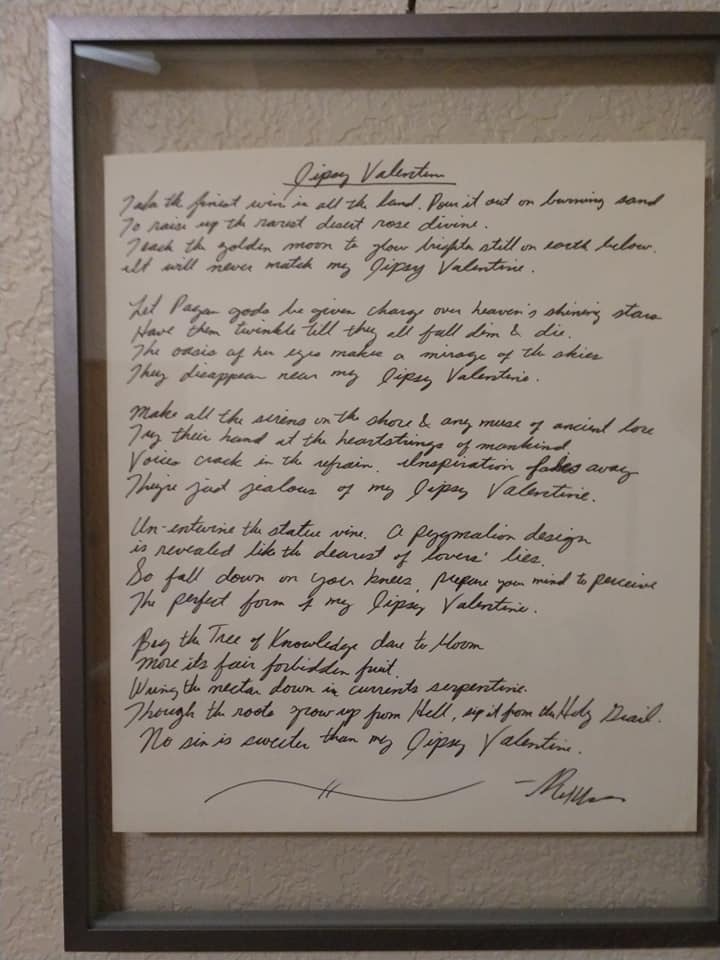 Gipsy Valentine
Take the finest wine in all the land. Pour it out on burning sand
To raise up the rarest desert rose divine.
Teach the golden moon to glow brighter still on earth below.
It will never match my Gipsy Valentine.
Let Pagan gods be given charge over heaven's shining stars
Have them twinkle till they all fall dim & die.
The oasis of her eyes makes a mirage of the skies
They disappear near my Gipsy Valentine.
Make all the sirens on the shore & any muse of ancient lore
Try their hand at the heartstrings of mankind
Voices crack in the refrain. Inspiration fades away
They're just jealous of my Gipsy Valentine.
Un-entwine the statue vine. A pygmalion design
is revealed like the dearest of lovers' lies.
So fall down on your knees, prepare your mind to perceive
The perfect form of my Gipsy Valentine.
Beg the Tree of Knowledge dare to bloom
more its fair forbidden fruit.
Wring the nectar down in currents serpentine.
Though the roots grow up from Hell, sip it from the Holy Grail.
No sin is sweeter than my Gipsy Valentine.